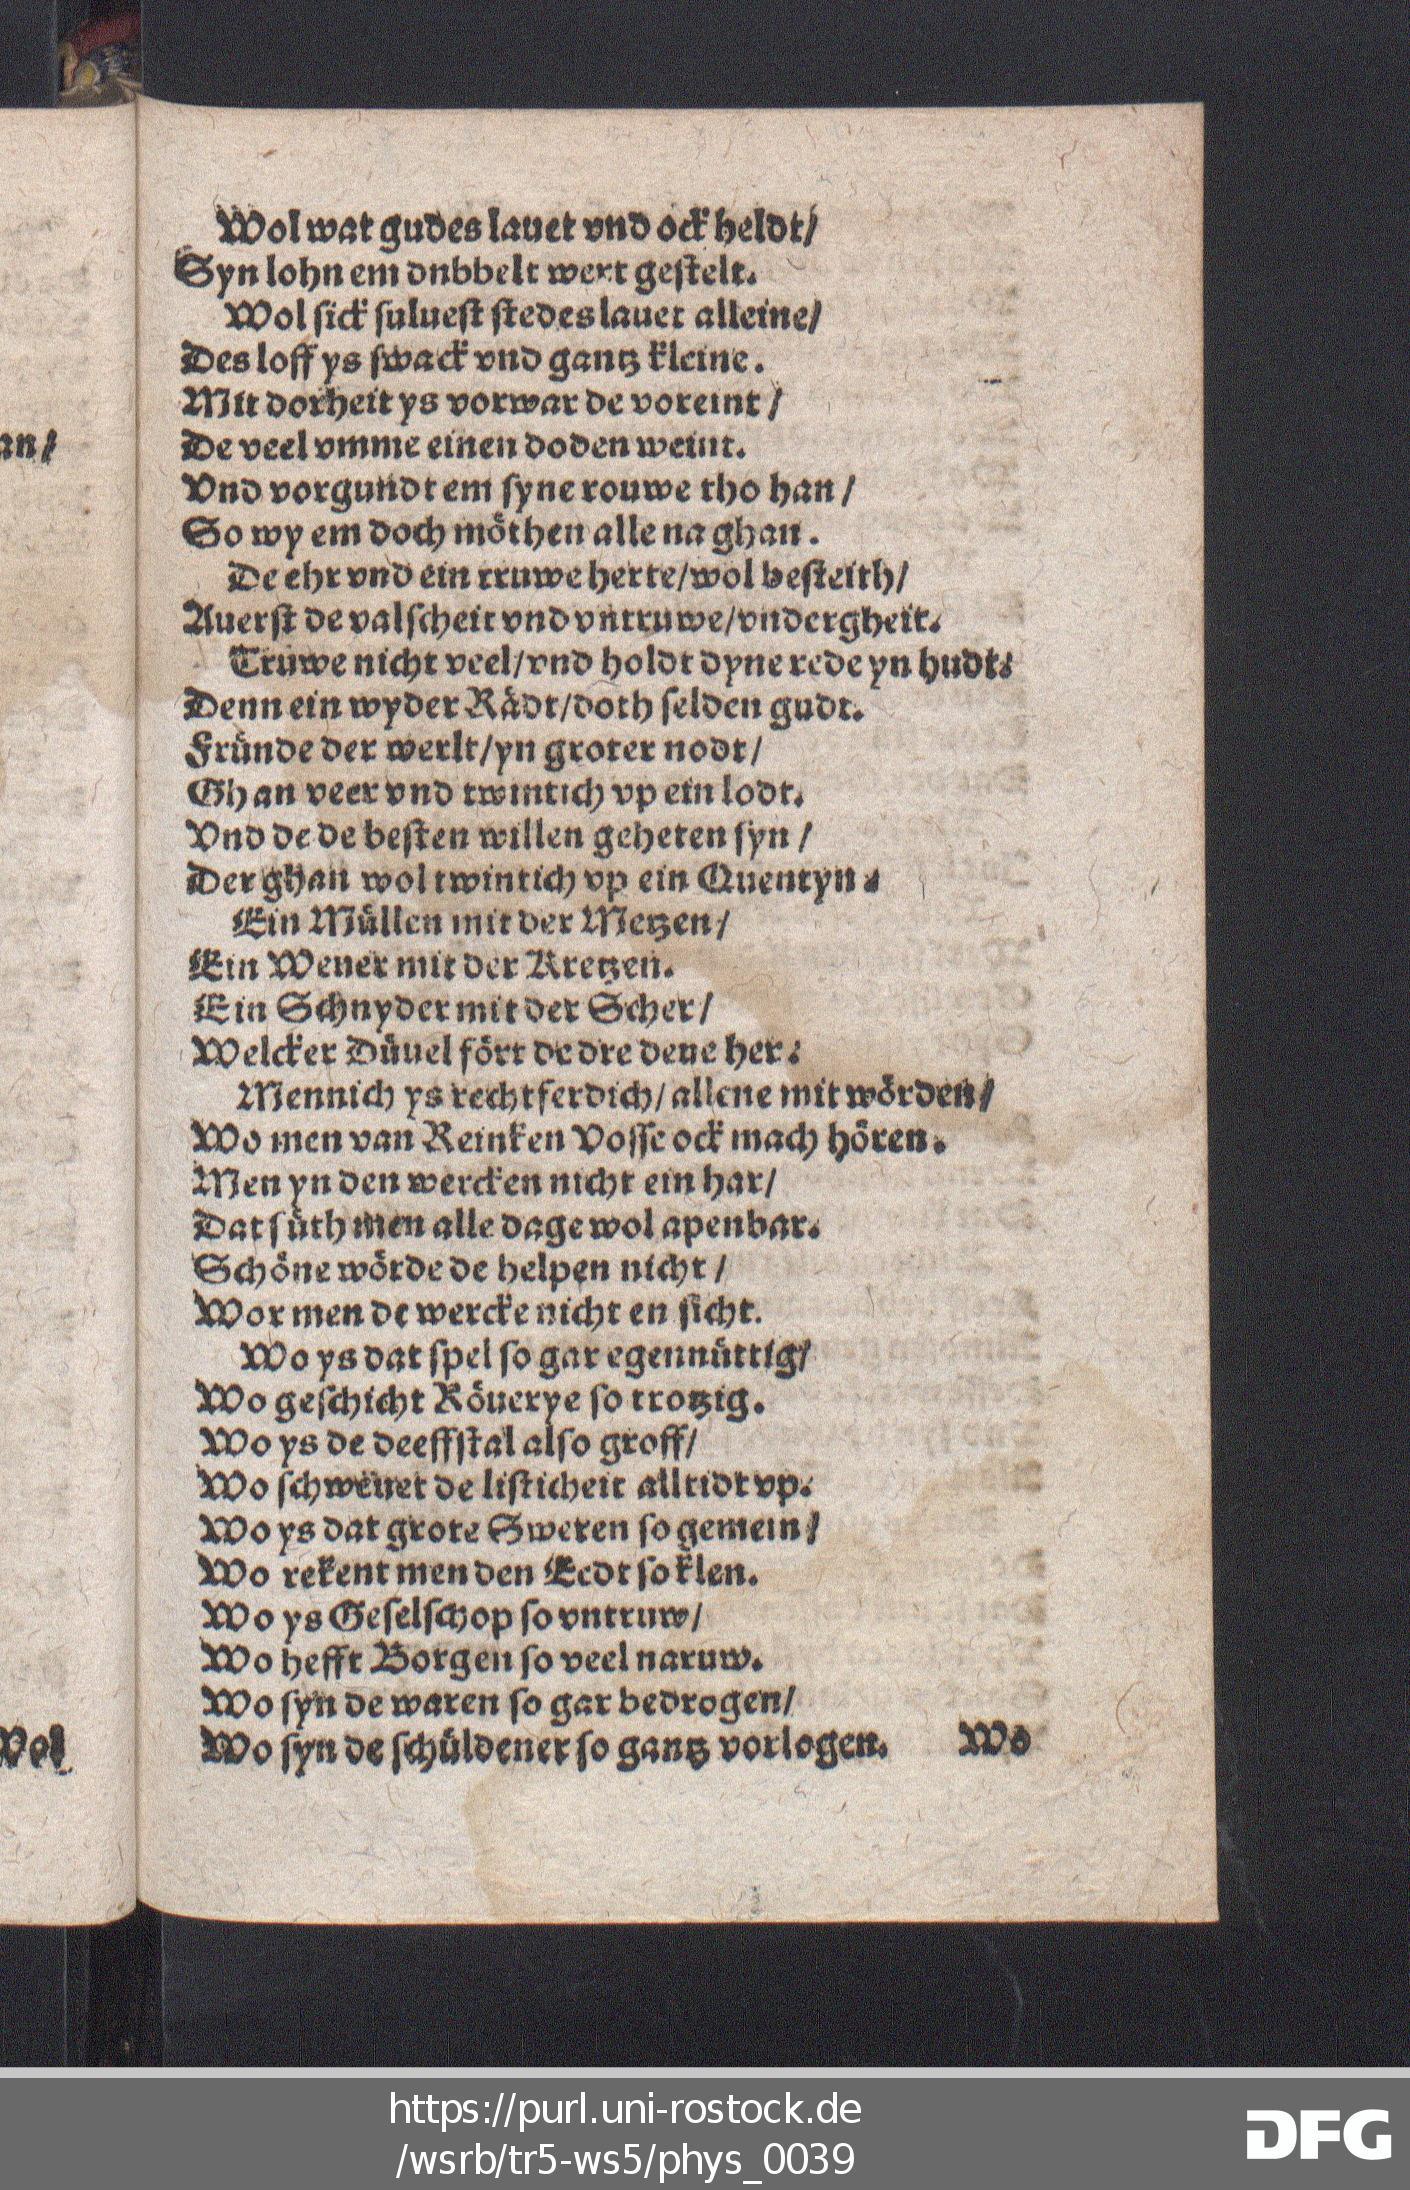 an/
Wol
Wol wat gudes lauet vnd ock heldt/
Syn lohn em dnbbelt wert gestelt.
Wol sick suluest stedes lauet alleine/
Des loff ys swack vnd gantz kleine.
Mit dorheit ys vorwar de voreint/
De veel vmme einen doden weint.
Vnd vorgundt em syne rouwe tho han/
So wy em doch möthen alle na ghan.
De ehr vnd ein truwe herte/wol besteith/
Auerst de valscheit vnd vntruwe/vndergheit.
Truwe nicht veel/vnd holdt dyne rede yn hudt:
Denn ein wyder Rädt/doth selden gudt.
Fründe der werlt/yn groter nodt/
Ghan veer vnd twintich vp ein lodt.
Vnd de de besten willen geheten syn/
Der ghan wol twintich vp ein Quentyn.
Ein Müllen mit der Metzen/
Ein Weuer mit der Kretzen.
Ein Schnyder mit der Scher/
Welcker Düuel fört de dre deue her:
Mennich ys rechtferdich/allene mit wörden/
Wo men van Reinken Vosse ock mach hören.
Men yn den wercken nicht ein har/
Dat süth men alle dage wol apenbar.
Schöne wörde de helpen nicht/
Wor men de wercke nicht en sicht.
Wo ys dat spel so gar egennüttig/
Wo geschicht Röuerye so trotzig.
Wo ys de deeffstal also groff/
Wo schweuet de listicheit alltidt vp.
Wo ys dat grote Sweren so gemein/
Wo rekent men den Eedt so klen.
Wo ys Geselschop so vntruw/
Wo hefft Borgen so veel naruw.
Wo syn de waren so gar bedrogen/
Wo syn de schüldener so gantz vorlogen. Wo
https://purl.uni-rostock.de
/wsrb/tr5-ws5/phys_0039
DFG